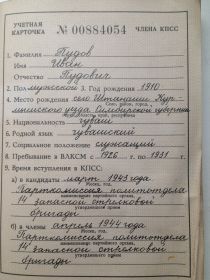 УЧЕТНАЯ КАРТОЧКА № 00884054 ЧЛЕНА КПСС
1. Фамилия Тудов
Имя Иван
Отчество Тудович
2. Пол мужской 3. Год рождения 1910
4. Место рождения село Штанаши Кур-
мышского уезда Симбирской губернии
5. Национальность чуваш
6. Родной язык чувашский
7. Социальное положение служащий
8. Пребывание в ВЛКСМ с 1926 г. по 1931 г.
9. Время вступления в КПСС:
а) в кандидаты март 1943 года
Парткомиссия политотдела
14 запасной стрелковой
бригады
б) в члены апрель 1944 года
Парткомиссия политотдела
14 запасной стрелковой
бригады